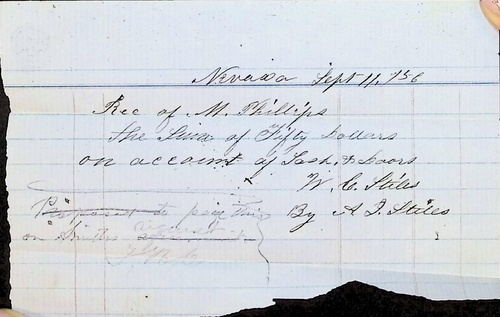 Nevada Sept 11, '56
Rec of M. Phillips
the Sum of Fifty Dollars
on account of Sash & Doors
W. C. Stiles
By A. J. Stiles
to pay this
on